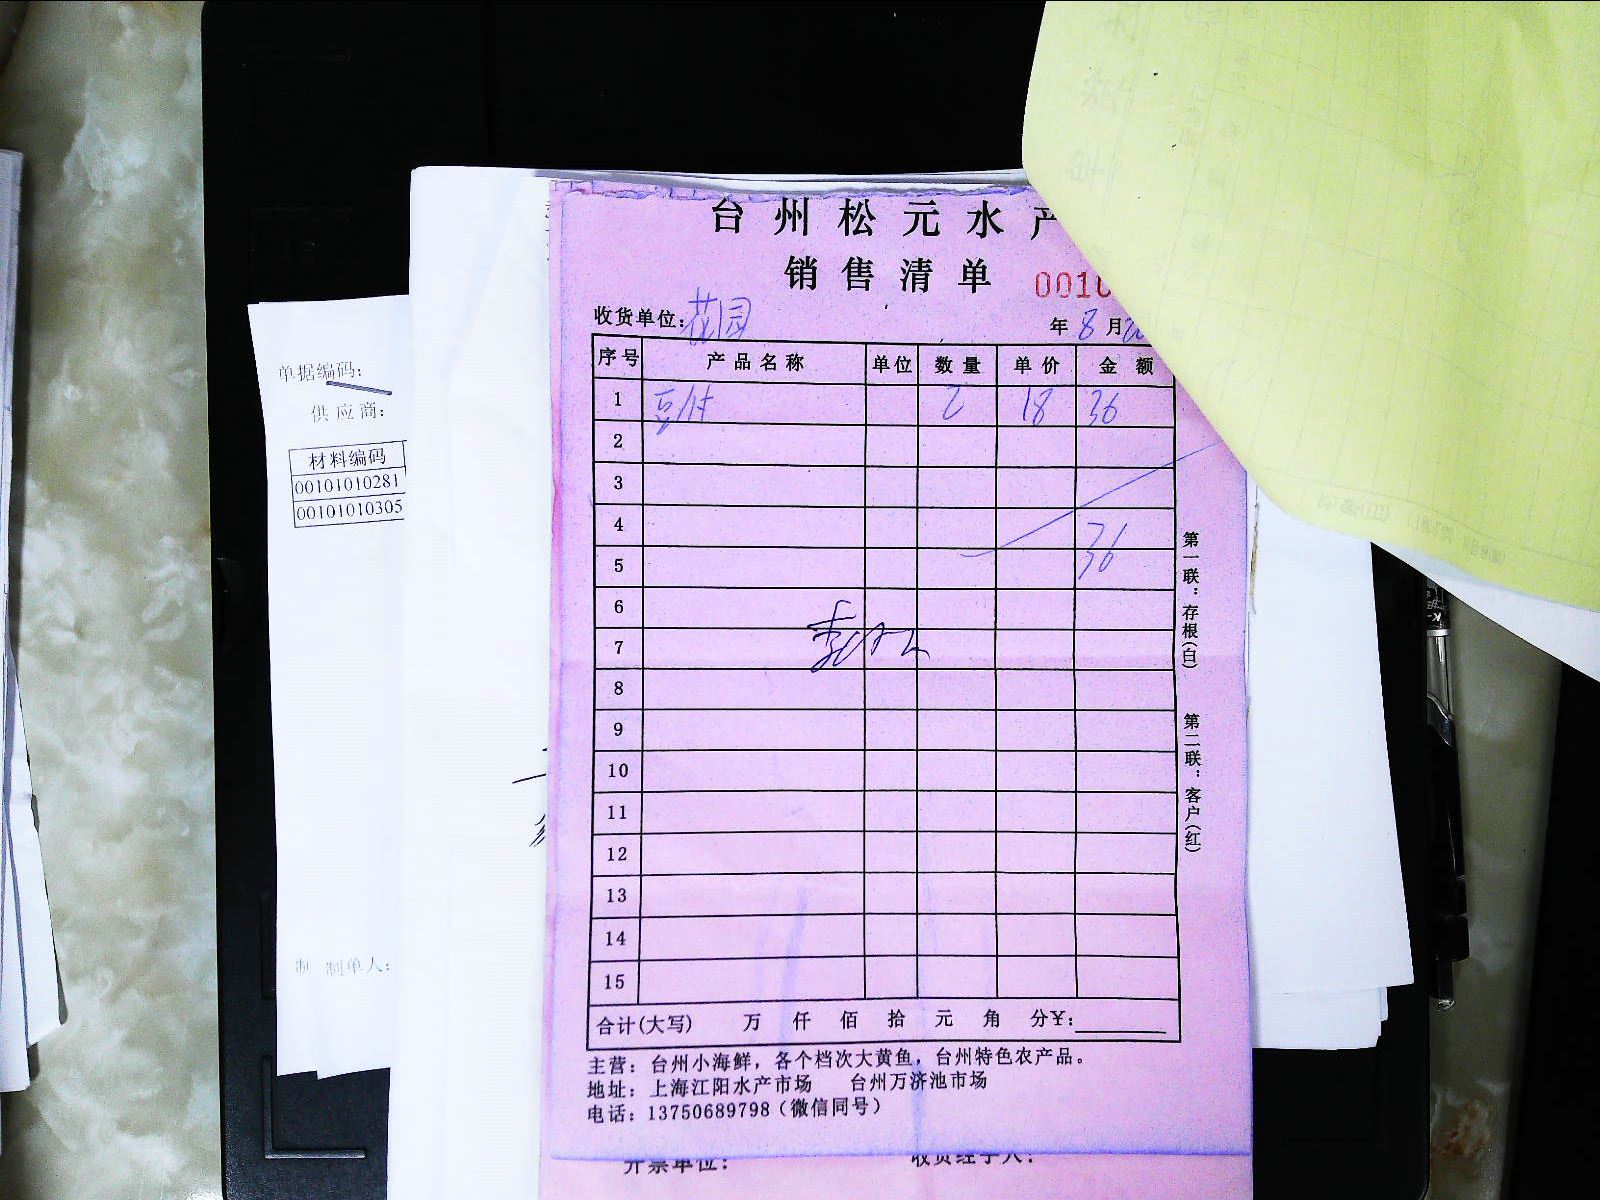 台州松元水产
销售清单 0010
收货单位: 花园 年 8 月
序号 产品名称 单位 数量 单价 金额
1 豆付 2 18 36
2
3
4
5 36
6
7
8
9
10
11
12
13
14
15
合计(大写) 万 仟 佰 拾 元 角 分¥:
主营：台州小海鲜，各个档次大黄鱼，台州特色农产品。
地址：上海江阳水产市场 台州万济池市场
电话：13750689798（微信同号）
开票单位: 收货经手人:
第一联：存根(白)
第二联：客户(红)
单据编码:
供应商:
材料编码
00101010281
00101010305
制 制单人: